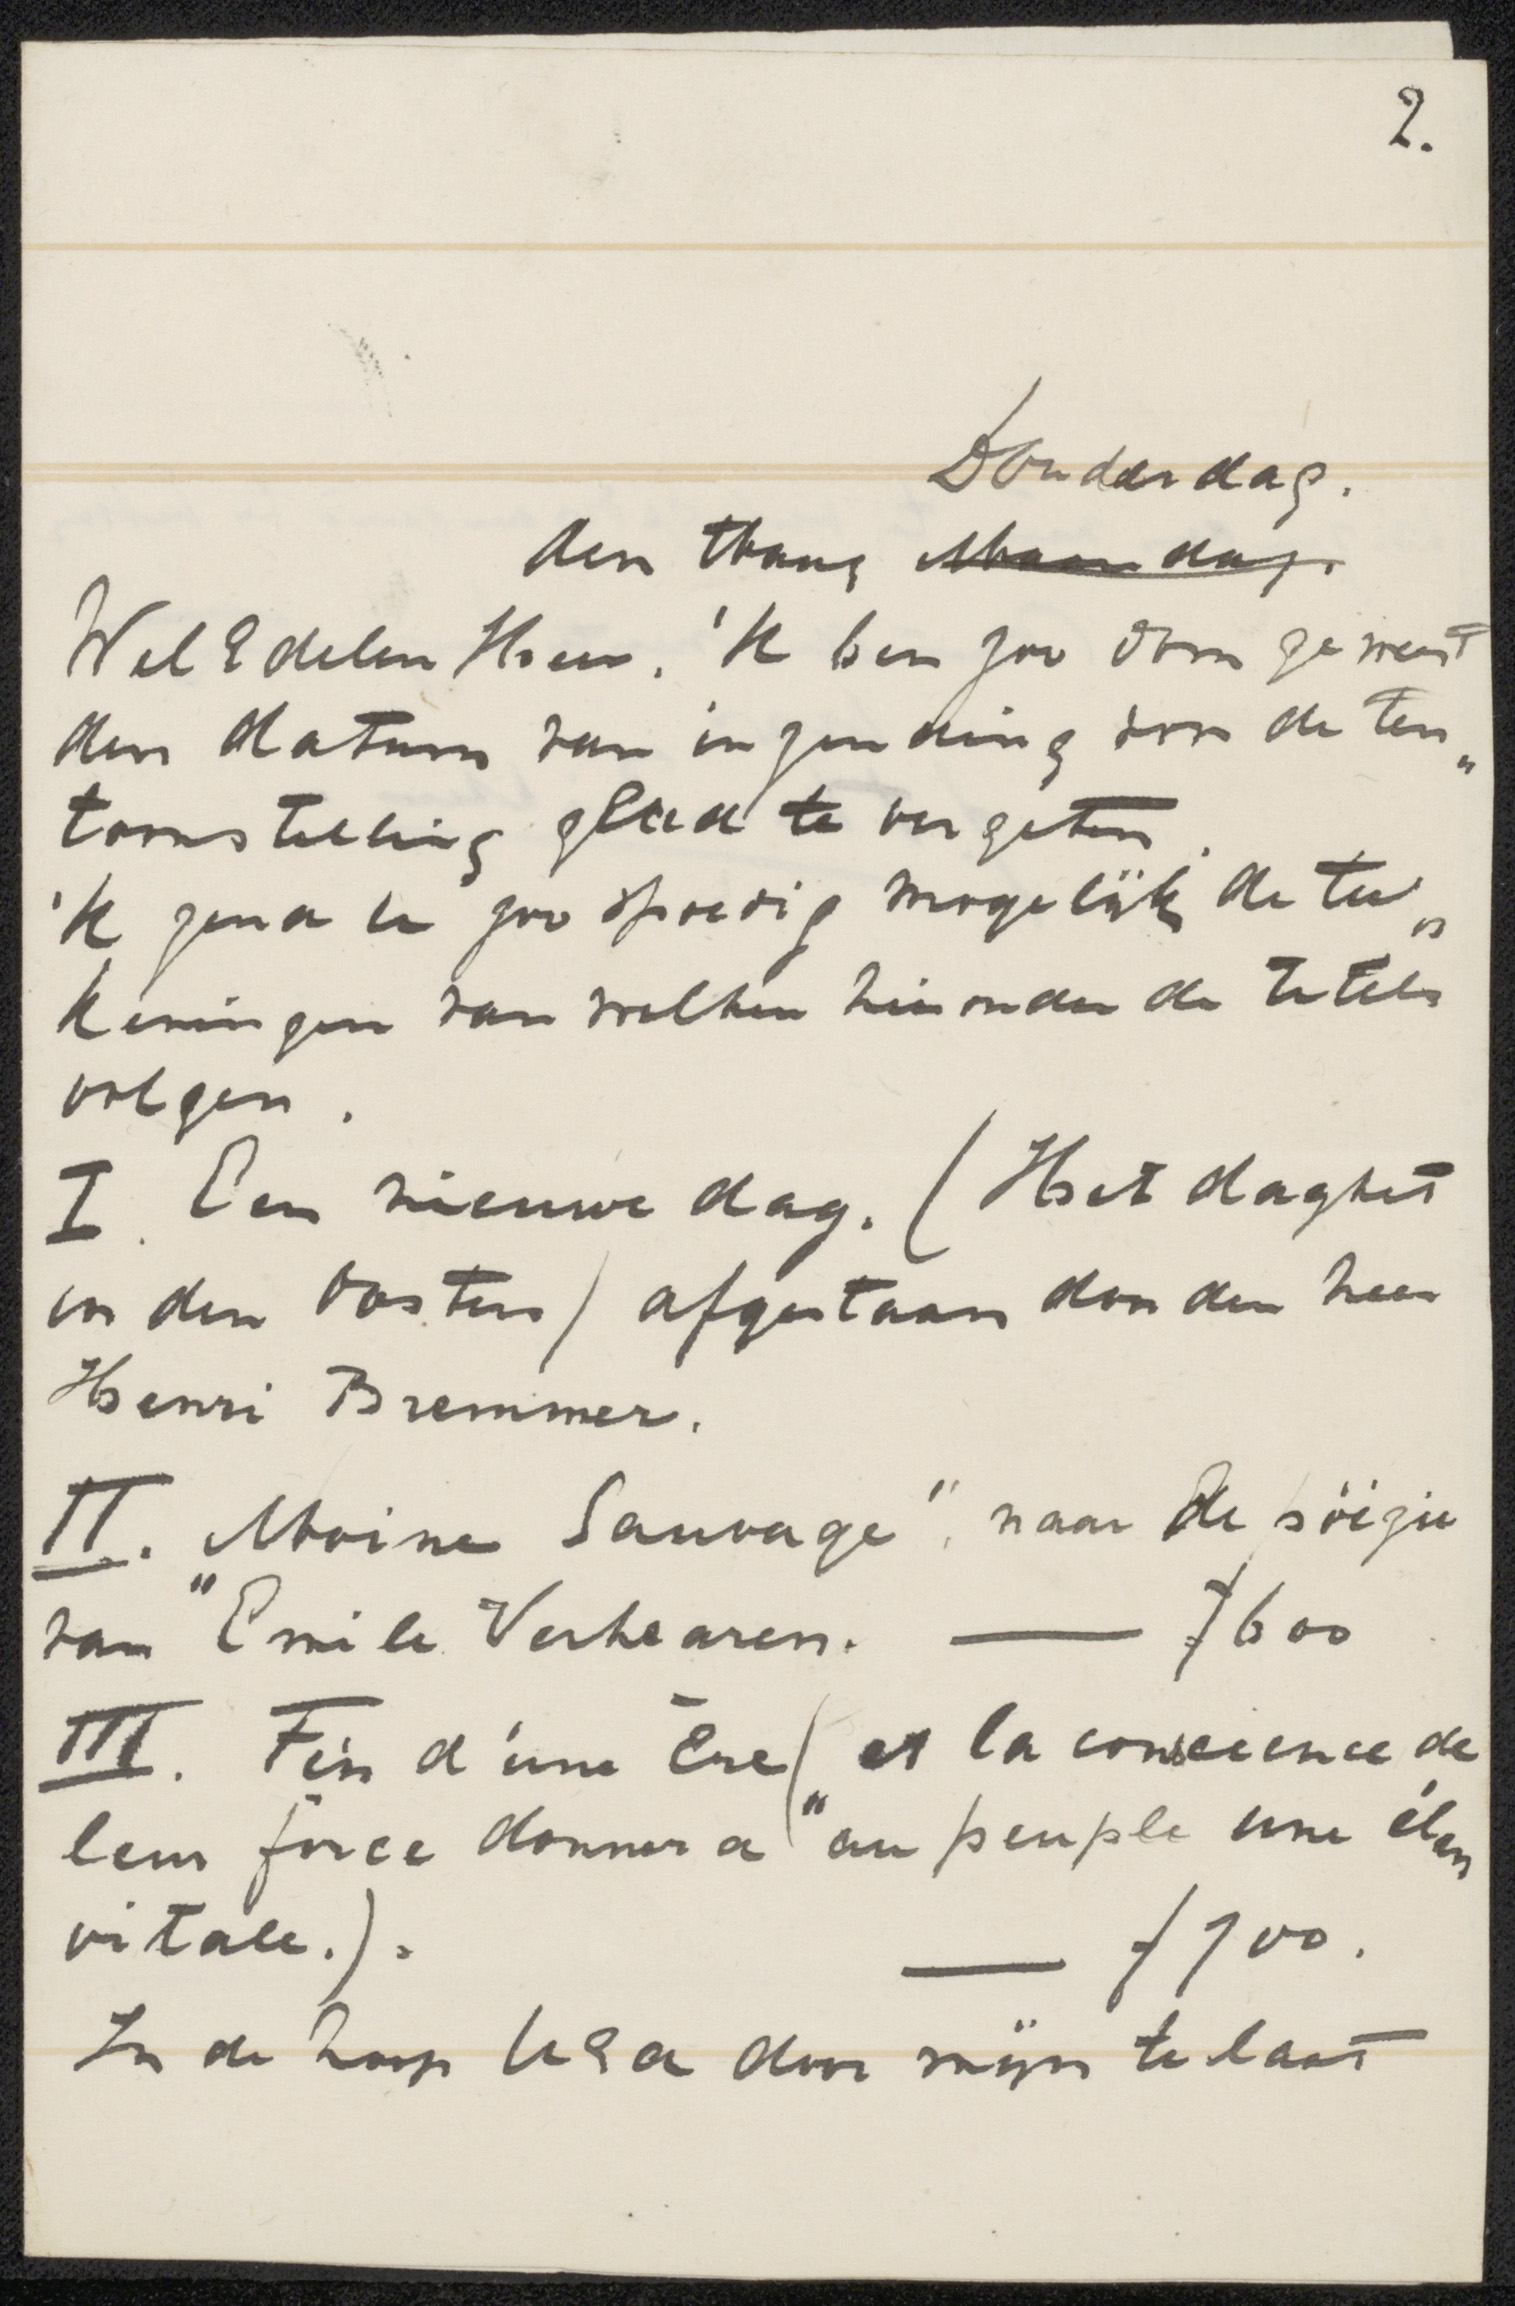 2.
Donderdag.
den Haag Maandag.
WelEdelen Heer. 'k ben zoo dom geweest
den datum van inzending voor de ten„
toonstelling glad te vergeten.
'k zend u zoo spoedig mogelijk de tee„
keningen van welken hieronder de titels
volgen.
I. Een nieuwe dag. (Het daghet
in den Oosten) afgestaan door den heer
Henri Bremmer.
II. „Moine Sauvage", naar de pöëzie
van Emile Verhearen. — f 600
III. Fin d'une Ère ("et la conscience de
leur force donnera au peuple une élan
vitale.). — f 700.
In de hoop UEd door mijn te laat